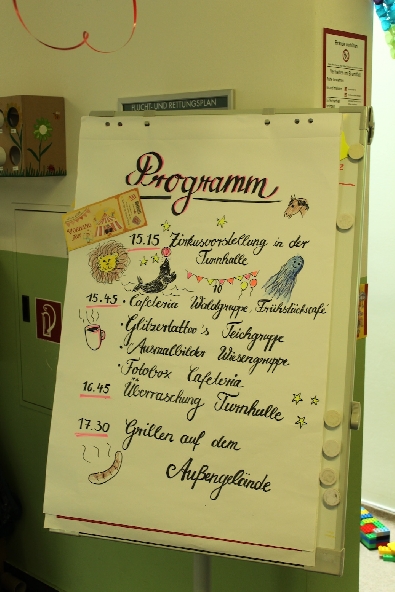 FLUCHT- UND RETTUNGSPLAN
Programm
15.15 Zirkusvorstellung in der
Turnhalle
10
15.45 • Cafeteria Waldgruppe, Frühstückscafé
• Glitzertattoo's Teichgruppe
• Ausmalbilder Wiesengruppe
• Fotobox Cafeteria
16.45 Überraschung Turnhalle
17.30 Grillen auf dem
Außengelände